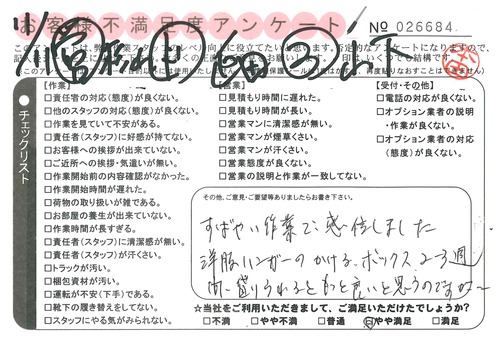 お客様不満足度アンケート
No 026684
【作業】
□責任者の対応(態度)が良くない。
□他のスタッフの対応(態度)が良くない。
□作業を見ていて不安がある。
□責任者(スタッフ)に好感が持てない。
□お客様への挨拶が出来ていない。
□ご近所への挨拶・気遣いが無い。
□作業開始前の内容確認がなかった。
□作業開始時間が遅れた。
□荷物の取り扱いが雑である。
□お部屋の養生が出来ていない。
□作業時間が長すぎる。
□責任者(スタッフ)に清潔感が無い。
□責任者(スタッフ)が汗くさい。
□トラックが汚い。
□梱包資材が汚い。
□運転が不安(下手)である。
□靴下の履き替えをしてない。
□スタッフにやる気がみられない。
【営業】
□見積もり時間に遅れた。
□見積もり時間が長い。
□営業マンに清潔感が無い。
□営業マンが煙草くさい。
□営業マンが汗くさい。
□営業態度が良くない。
□営業の説明と作業が一致してない。
【受付・その他】
□電話の対応が良くない。
□オプション業者の説明
・作業が良くない。
□オプション業者の対応
(態度)が良くない。
チェックリスト
その他、ご意見・ご要望等ありましたらお書き下さい。
すばやい作業で、感信しました
洋服ハンガーのかける、ボックス 2~3週
間、借りられるともっと良いと思うのですが〜
☆当社をご利用いただきまして、ご満足いただけたでしょうか?
□不満 □やや不満 □普通 □やや満足 □満足